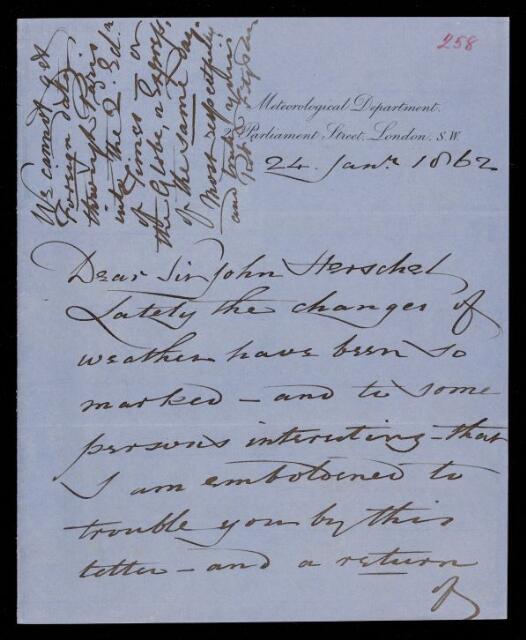 258
Meteorological Department.
2 Parliament Street, London. S.W.
24 Janr. 1862
Dear Sir John Herschel
Lately the changes of
weather have been so
marked – and to some
persons interesting – that
I am emboldened to
trouble you by this
letter – and a return
of
We cannot get
Foreign data
through Paris
into the 2d. Edn
of Times – or
the Globe, & Express,
of the same Day.
Most respectfully
and truly yours
Robt FitzRoy